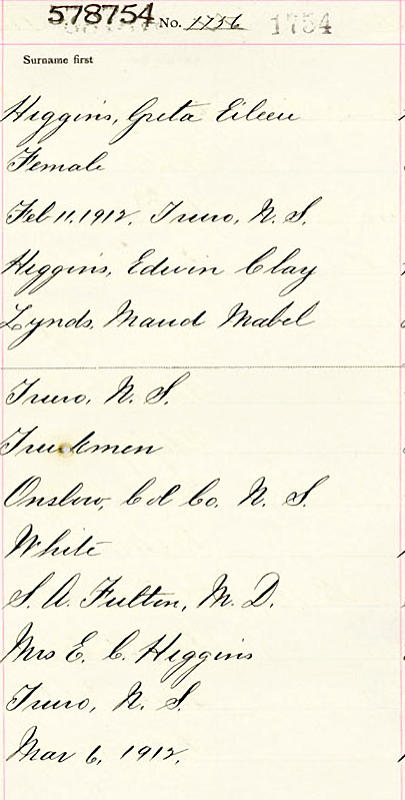 578754 No. 1756 1754
Surname first
Higgins, Greta Eileen
Female
Feb 11. 1912. Truro, N. S.
Higgins, Edwin Clay
Lynds, Maud Mabel
Truro, N. S.
Truckmen
Onslow, Col Co. N. S.
White
S. A. Fulton, M. D.
Mrs E. C. Higgins
Truro, N. S.
Mar 6, 1912.